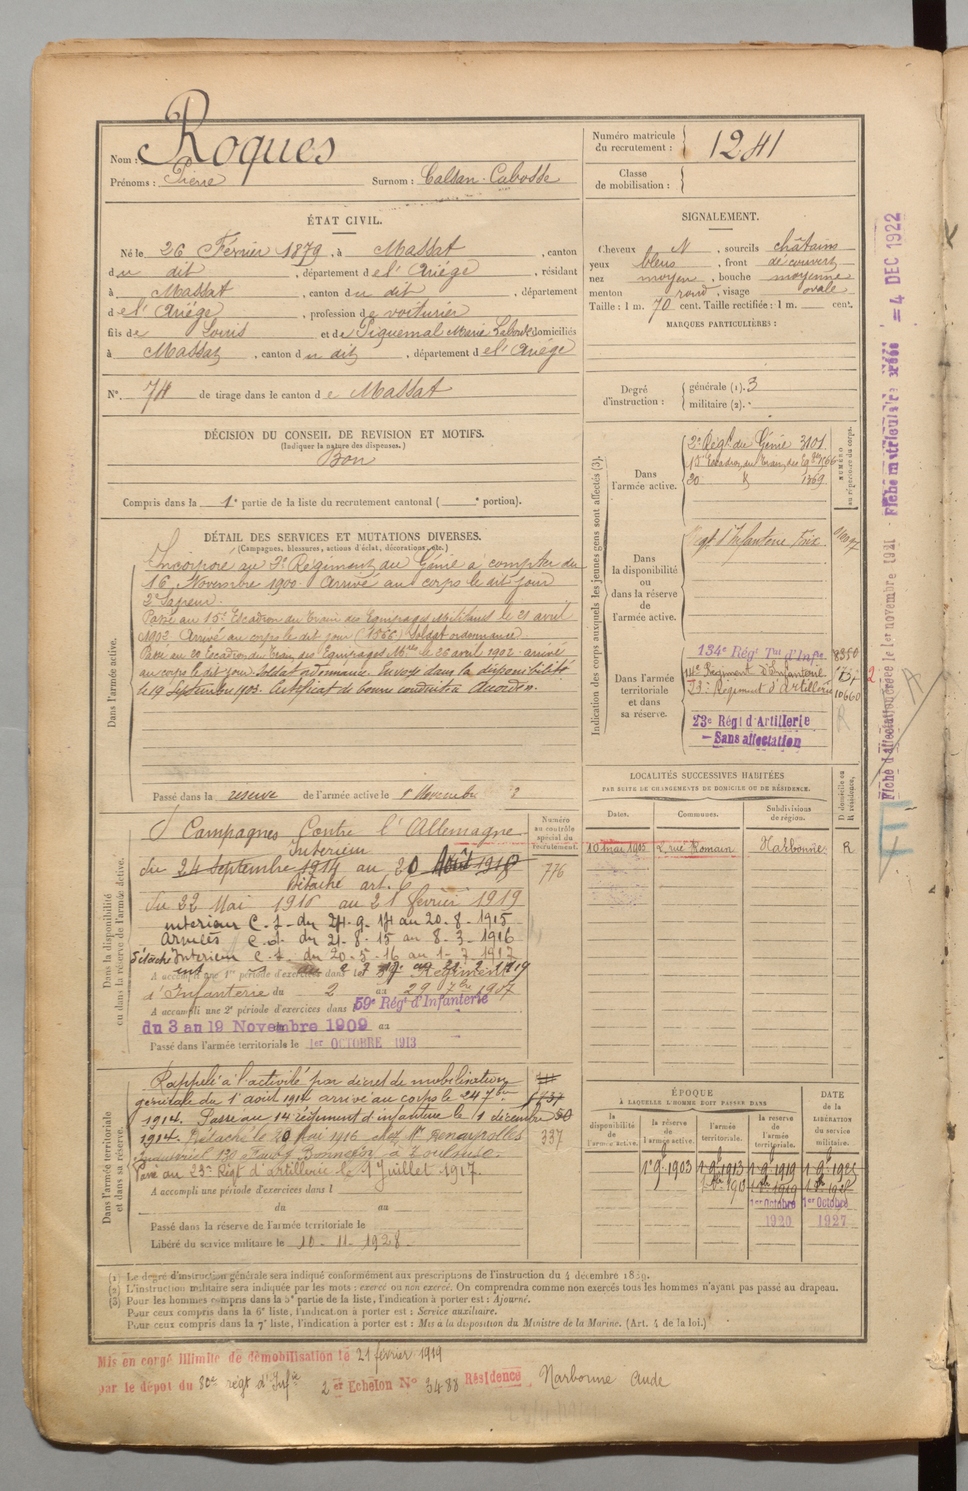 Nom : Roques
Prénoms : Pierre Surnom : Calsan-Cabosse
Numéro matricule du recrutement : 1241
Classe de mobilisation :
ÉTAT CIVIL.
Né le 26 Février 1879, à Massat, canton
du dit, département de l'Ariège, résidant
à Massat, canton du dit, département
de l'Ariège, profession de voiturier
fils de Louis et de Piquemal Marie domiciliés
à Massat, canton du dit, département de l'Ariège
N° 74 de tirage dans le canton de Massat
SIGNALEMENT.
Cheveux N, sourcils châtains
yeux bleus, front découvert
nez moyen, bouche moyenne
menton rond, visage ovale
Taille : 1 m. 70 cent. Taille rectifiée : 1 m. cent.
MARQUES PARTICULIÈRES :
Degré d'instruction : générale (1). 3
militaire (2).
DÉCISION DU CONSEIL DE REVISION ET MOTIFS.
(Indiquer la nature des dispenses.)
Bon
Compris dans la 1e partie de la liste du recrutement cantonal ( e portion).
DÉTAIL DES SERVICES ET MUTATIONS DIVERSES.
(Campagnes, blessures, actions d'éclat, décorations, etc.)
Dans l'armée active.
Incorporé au 2e Régiment du Génie à compter du
16 Novembre 1900. Arrivé au corps le dit jour
2e Sapeur.
Passé au 15e Escadron du Train des Equipages Mres le 21 avril
1902 Arrivé au corps le dit jour (1566) Soldat ordonnance
Passé au 20 Escadron du Train des Equipages Mres le 26 avril 1902 arrivé
au corps le dit jour Soldat ordonnance. Envoyé dans la disponibilité
le 19 Septembre 1903. Certificat de bonne conduite Accordé.
Passé dans la reserve de l'armée active le 1er Novembre
Indication des corps auxquels les jeunes gens sont affectés (3).
NUMÉRO au répertoire du corps.
Dans l'armée active.
2e Regt du Génie 3101
15e Escadron du Train des Eq. 1566
20 1369
Dans la disponibilité ou dans la réserve de l'armée active.
Regt d'Infanterie Foix
Dans l'armée territoriale et dans sa réserve.
134e Régt Tal d'Infie 8350
14e Régiment d'Infanterie
23e Régiment d'Artillerie 10660
23e Régt d'Artillerie
Sans affectation
LOCALITÉS SUCCESSIVES HABITÉES
PAR SUITE DE CHANGEMENTS DE DOMICILE OU DE RÉSIDENCE.
Dates. Communes. Subdivisions de région. D domicile ou R résidence.
10 mai 1905 2 rue Romain Narbonne R
Dans la disponibilité ou dans la réserve de l'armée active.
Numéro au contrôle spécial du recrutement.
776
Campagnes Contre l'Allemagne
Intérieur
du 24 Septembre 1914 au 20 Août 1918
Détaché art. 6
du 22 Mai 1916 au 21 février 1919
intérieur C. S. du 24.9.14 au 20.8.1915
Armées C. d. du 21.8.15 au 8.3.1916
Détaché Intérieur C. S. du 20.5.16 au 1.7.1917
A accompli une 1re période d'exercices dans le Régiment
d'Infanterie du 2 au 29 7bre 1907
A accompli une 2e période d'exercices dans 59e Régt d'Infanterie
du 3 au 19 Novembre 1909 au
Passé dans l'armée territoriale le 1er OCTOBRE 1913
Dans l'armée territoriale et dans sa réserve.
Rappelé à l'activité par décret de mobilisation
générale du 1 août 1914 arrivé au corps le 24 7bre
1914. Passé au 14 régiment d'infanterie le 1 décembre
1914. Détaché le 20 mai 1916 chez Mr
industriel 130 Faubg Bonnefoy à Toulouse.
Passé au 23e Régt d'artillerie le 1 Juillet 1917.
337
A accompli une période d'exercices dans l
du au
Passé dans la réserve de l'armée territoriale le
Libéré du service militaire le 10-11-1928
ÉPOQUE
À LAQUELLE L'HOMME DOIT PASSER DANS
la disponibilité de l'armée active. la réserve de l'armée active. l'armée territoriale. la réserve de l'armée territoriale.
DATE de la LIBÉRATION du service militaire.
1er 9bre 1903 1er 9bre 1913 1er 9bre 1919
1er Octobre 1920 1er Octobre 1927
(1) Le degré d'instruction générale sera indiqué conformément aux prescriptions de l'instruction du 4 décembre 1889.
(2) L'instruction militaire sera indiquée par les mots : exercé ou non exercé. On comprendra comme non exercés tous les hommes n'ayant pas passé au drapeau.
(3) Pour les hommes compris dans la 5e partie de la liste, l'indication à porter est : Ajourné.
Pour ceux compris dans la 6e liste, l'indication à porter est : Service auxiliaire.
Pour ceux compris dans la 7e liste, l'indication à porter est : Mis à la disposition du Ministre de la Marine. (Art. 4 de la loi.)
Mis en congé illimité de démobilisation le 21 février 1919
par le dépôt du 80e régt d'Infie 2er Echelon N° 3488 Résidence Narbonne Aude
Fiche d'affectation créée le 1er novembre 1921 - Fiche matriculaire créée = 4 DEC 1922